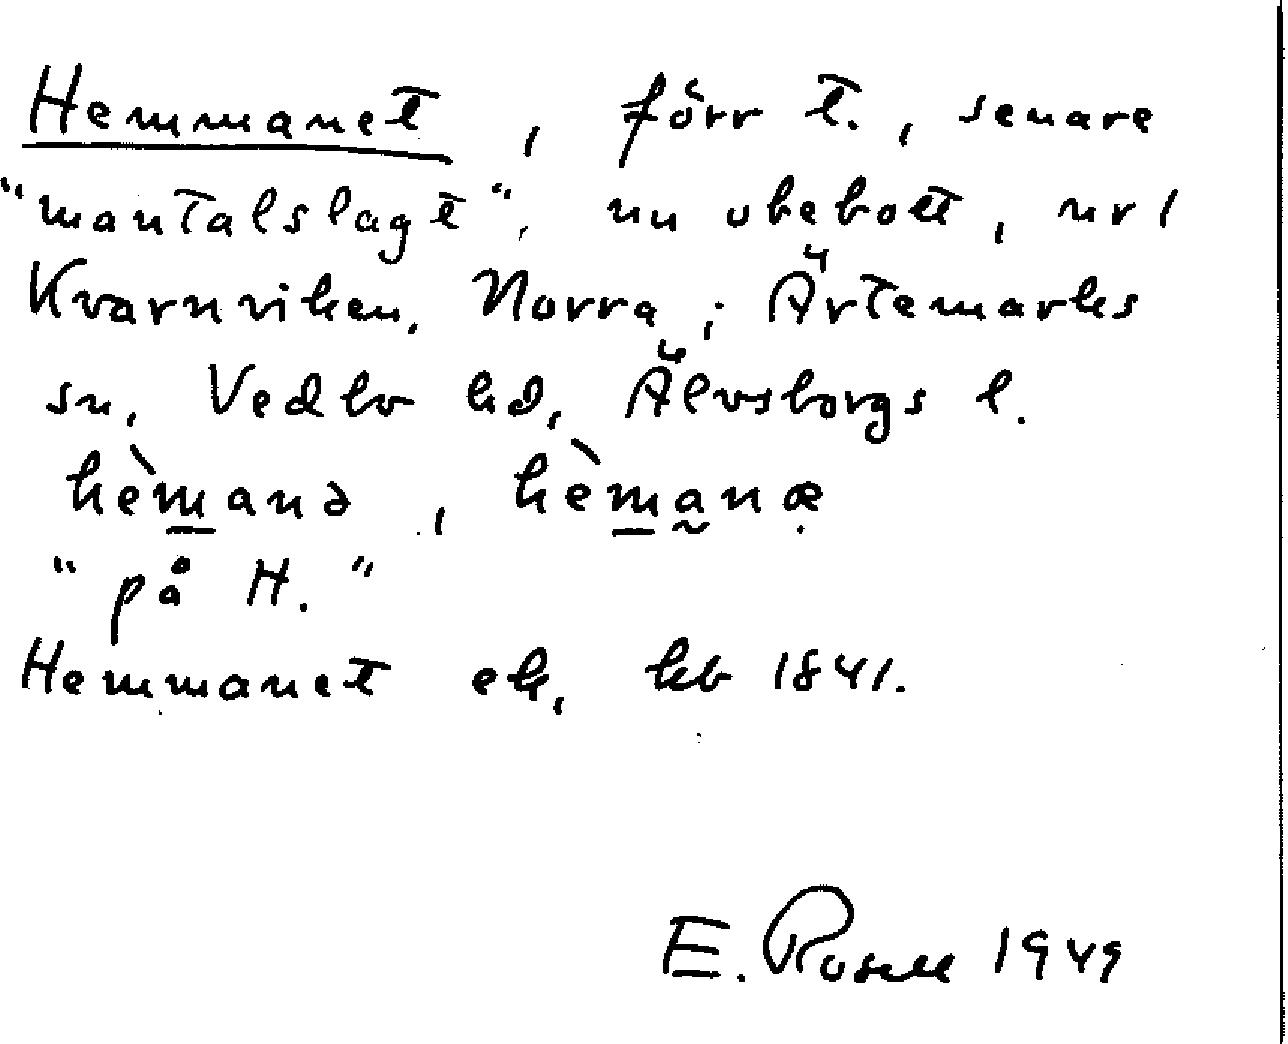 Hemmanet, förr t., senare
"mantalslagt", nu obebott, nr 1
Kvarnviken, Norra; Ärtemarks
sn, Vedbo hd, Älvsborgs l.
hèmanə, hèmanæ
"på H."
Hemmanet ek, hb 1841.
E. Rosell 1949